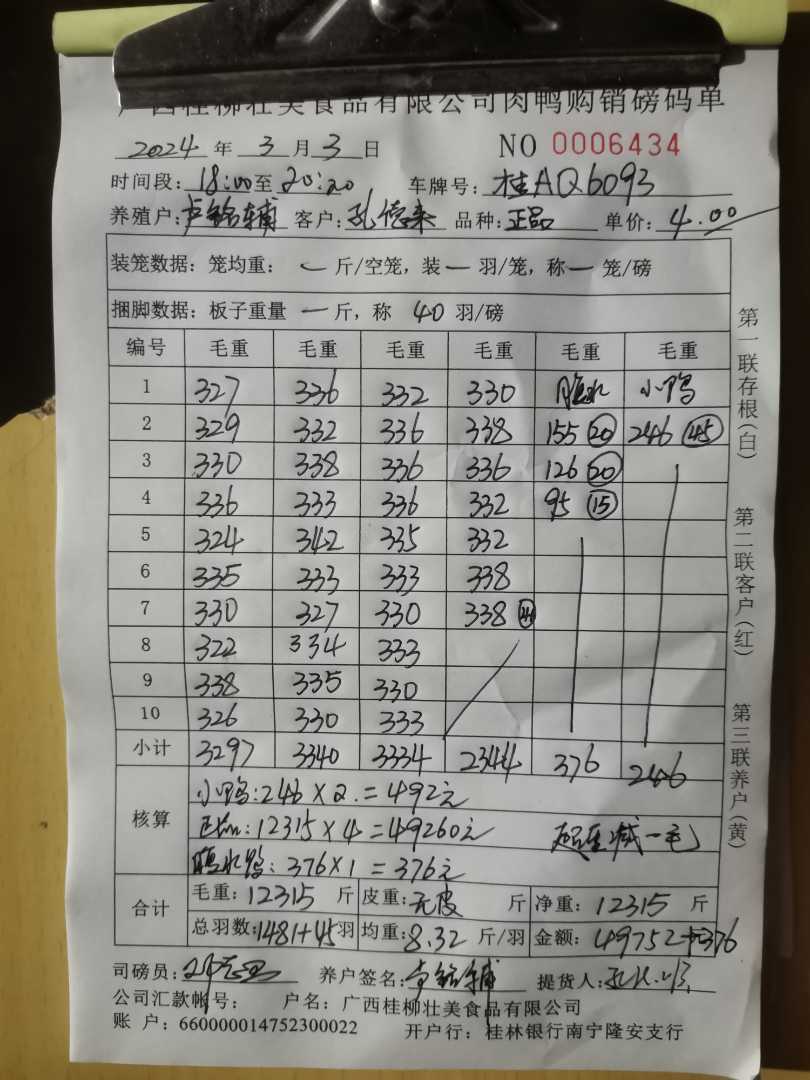 广西桂柳壮美食品有限公司肉鸭购销磅码单
2024 年 3 月 3 日 NO 0006434
时间段: 18:00 至 20:20 车牌号: 桂AQ6093
养殖户: 卢铭辅 客户: 孔德来 品种: 正品 单价: 4.00
装笼数据: 笼均重: 斤/空笼, 装 一 羽/笼, 称 一 笼/磅
捆脚数据: 板子重量 一 斤, 称 40 羽/磅
编号 毛重 毛重 毛重 毛重 毛重 毛重
1 327 336 332 330 腹水 小鸭
2 329 332 336 338 155 (20) 246 (45)
3 330 338 336 336 126 (20)
4 336 333 336 332 95 (15)
5 324 342 335 332
6 335 333 333 338
7 330 327 330 338
8 322 334 333
9 338 335 330
10 326 330 333
小计 3297 3340 3334 2344 376 246
核算
小鸭: 246 × 2. = 492元
正品: 12315 × 4 = 49260元 超重减一毛
腹水鸭: 376 × 1 = 376元
合计
毛重: 12315 斤 皮重: 无皮 斤 净重: 12315 斤
总羽数: 1481+45 羽 均重: 8.32 斤/羽 金额: 49752+376
司磅员: 养户签名: 卢铭辅 提货人:
公司汇款帐号: 户名: 广西桂柳壮美食品有限公司
账 户: 660000014752300022 开户行: 桂林银行南宁隆安支行
第一联存根(白)
第二联客户(红)
第三联养户(黄)